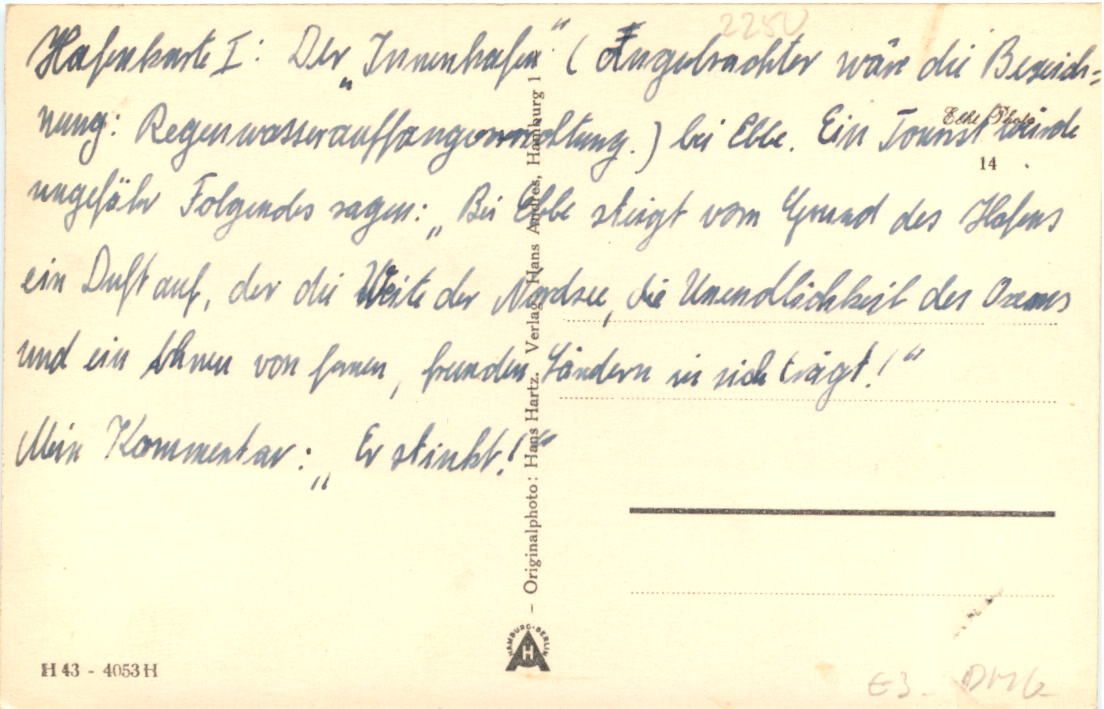 2250
Hafenkarte I: Der „Innenhafen“ (Angebrachter wäre die Bezeich=
nung: Regenwasserauffangvorrichtung.) bei Ebbe. Ein Tourist würde
Echte Photo
14
ungefähr Folgendes sagen: „Bei Ebbe steigt vom Grund des Hafens
ein Duft auf, der die Weite der Nordsee, die Unendlichkeit des Ozeans
und ein Ahnen von fernen, fremden Ländern in sich trägt!“
Mein Kommentar: „Er stinkt!“
– Originalphoto: Hans Hartz. Verlag Hans Andres, Hamburg 1
HAMBURG-BERLIN
H
H 43 - 4053 H
€3.- DMG